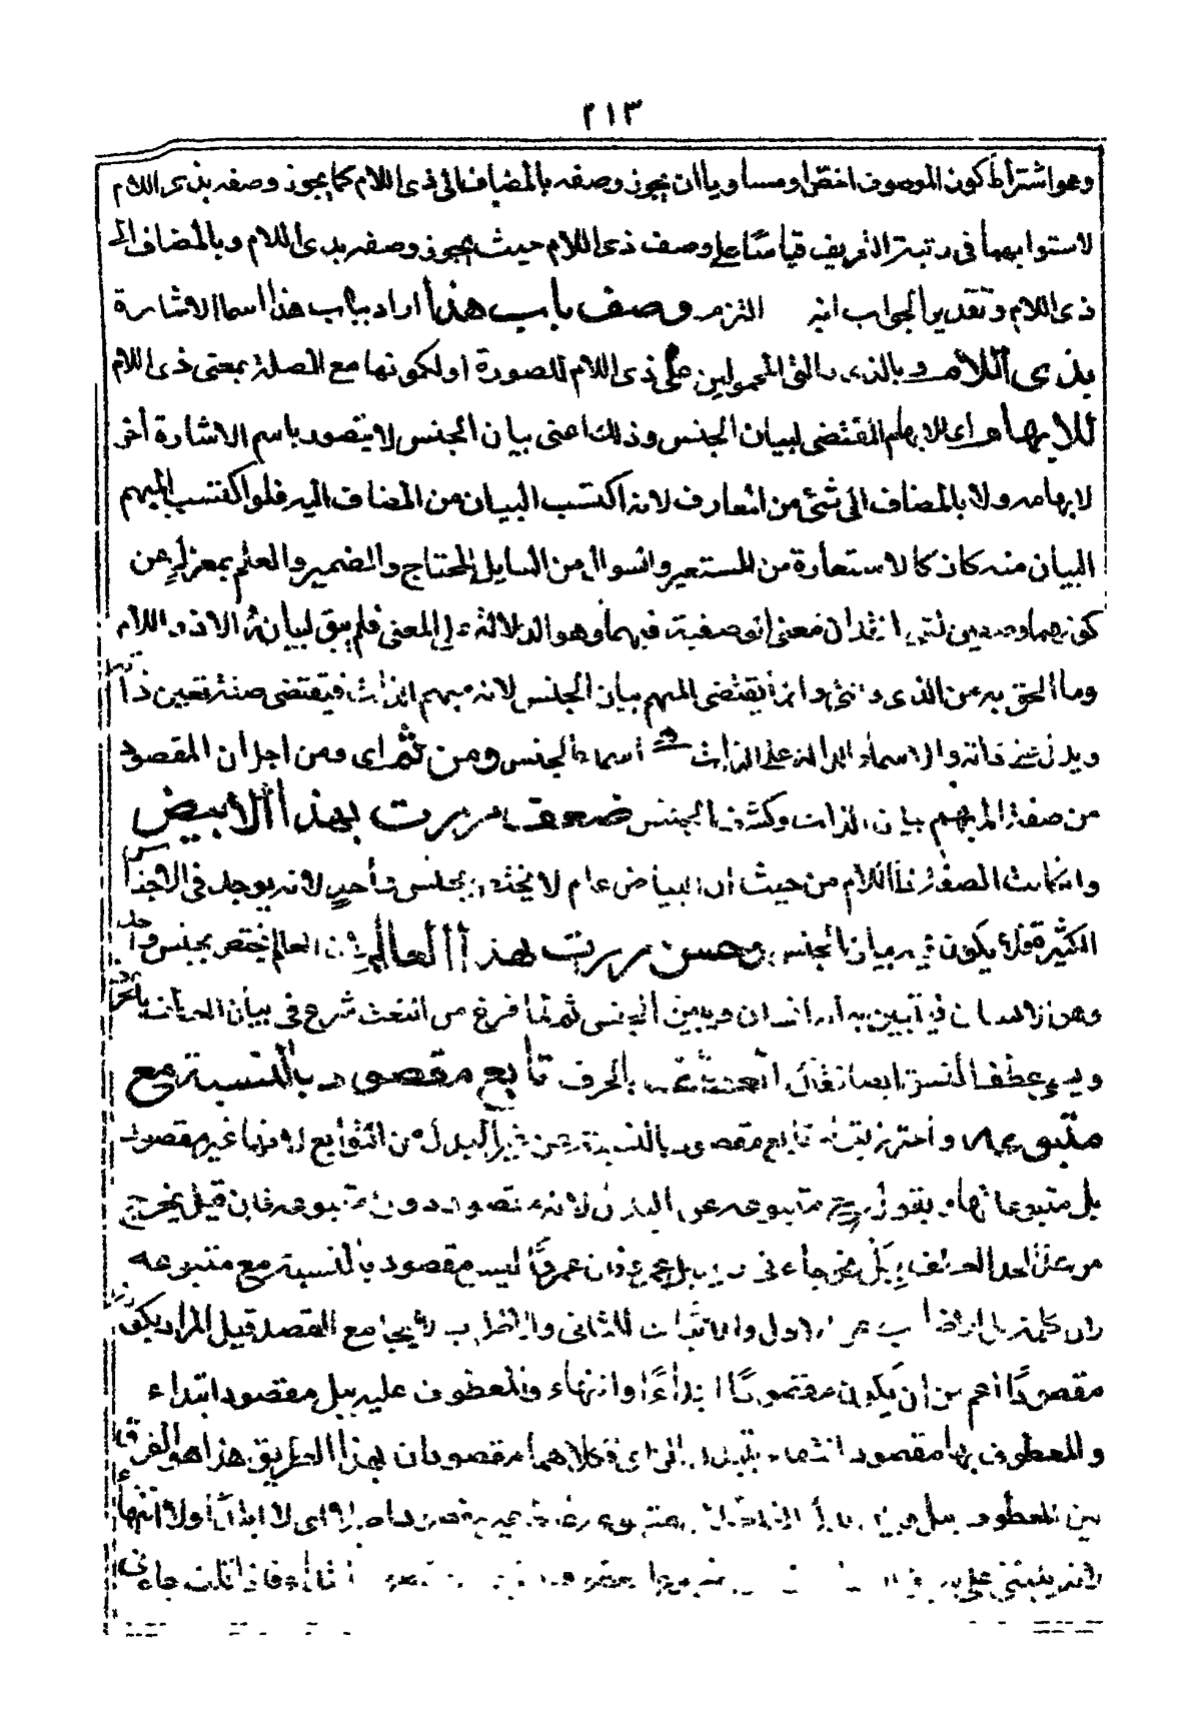 ٢١٣
وهو اشتراط كون الموصوف اخص او مساويا ان يجوز وصفه بالمضاف الى ذى اللام كما يجوز وصفه بذى اللام
لاستوائهما فى رتبة التعريف قياسا على وصف ذى اللام حيث يجوز وصفه بذى اللام وبالمضاف الى
ذى اللام وتقدير الجواب انه التزم وصف باب هذا اراد بباب هذا اسما الاشارة
بذى اللام و بالذى والتى المحمولين على ذى اللام للصورة او لكونها مع الصلة بمعنى ذى اللام
للابهام اى للابهام المقتضى لبيان الجنس وذلك اعنى بيان الجنس لا يتصور باسم الاشارة اخر
لابهامه ولا بالمضاف الى شئ من المعارف لانه اكتسب البيان من المضاف اليه فلو اكتسب المبهم
البيان منه كان كالاستعارة من المستعير والسوال من السايل المحتاج والمضمير والعلم بمعزل عن
كونهما وصفين معنى التوصفية فيهما وهو الدلالة على المعنى فلم يبق لبيانه الا ذو اللام
وما الحق به من الذى والتى وانما يقتضى المبهم بيان الجنس لانه مبهم الذات فيقتضى صفة تعين ذاته
ويدل على ذاته والاسماء الدالة على الذات اسماء الجنس ومن ثم اى ومن اجل ان المقصود
من صفة المبهم بيان الذات وكشف الجنس ضعف مررت بهذا الابيض
وان كانت الصفة ذا اللام من حيث ان البياض عام لا يختص بجنس واحد لانه يوجد فى الاجناس
الكثيرة فلا يكون فيه بيان الجنس وحسن مررت بهذا العالم لان العالم يختص بجنس واحد
وهو الانسان فيتبين به انه انسان ويبين الجنس ثم لما فرغ من النعت شرع فى بيان العطف بالحرف
ويسمى عطف النسق ايضا فقال العطف بالحرف تابع مقصود بالنسبة مع
متبوعه واحترز بقوله تابع مقصود بالنسبة عن غير البدل من التوابع لانها غير مقصودة
بل متبوعاتها وبقوله مع متبوعه عن البدل لانه مقصود دون متبوعه فان قيل يخرج
من هذا الحد العطف ببل نحو جاءنى زيد بل عمرو فان عمروا ليس مقصودا بالنسبة مع متبوعه
لان كلمة بل للاضراب عن الاول والاثبات للثانى والاضراب لا يجامع القصد قيل المراد بكونه
مقصودا اعم من ان يكون مقصودا ابتداءا وانتهاء والمعطوف عليه ببل مقصود ابتداء
والمعطوف بها مقصود انتهاء فكلاهما مقصودان بهذا الطريق هذا هو الفرق
بين المعطوف ببل وبين لا ابتداء ولا انتهاء
فاذا قلت جاءنى